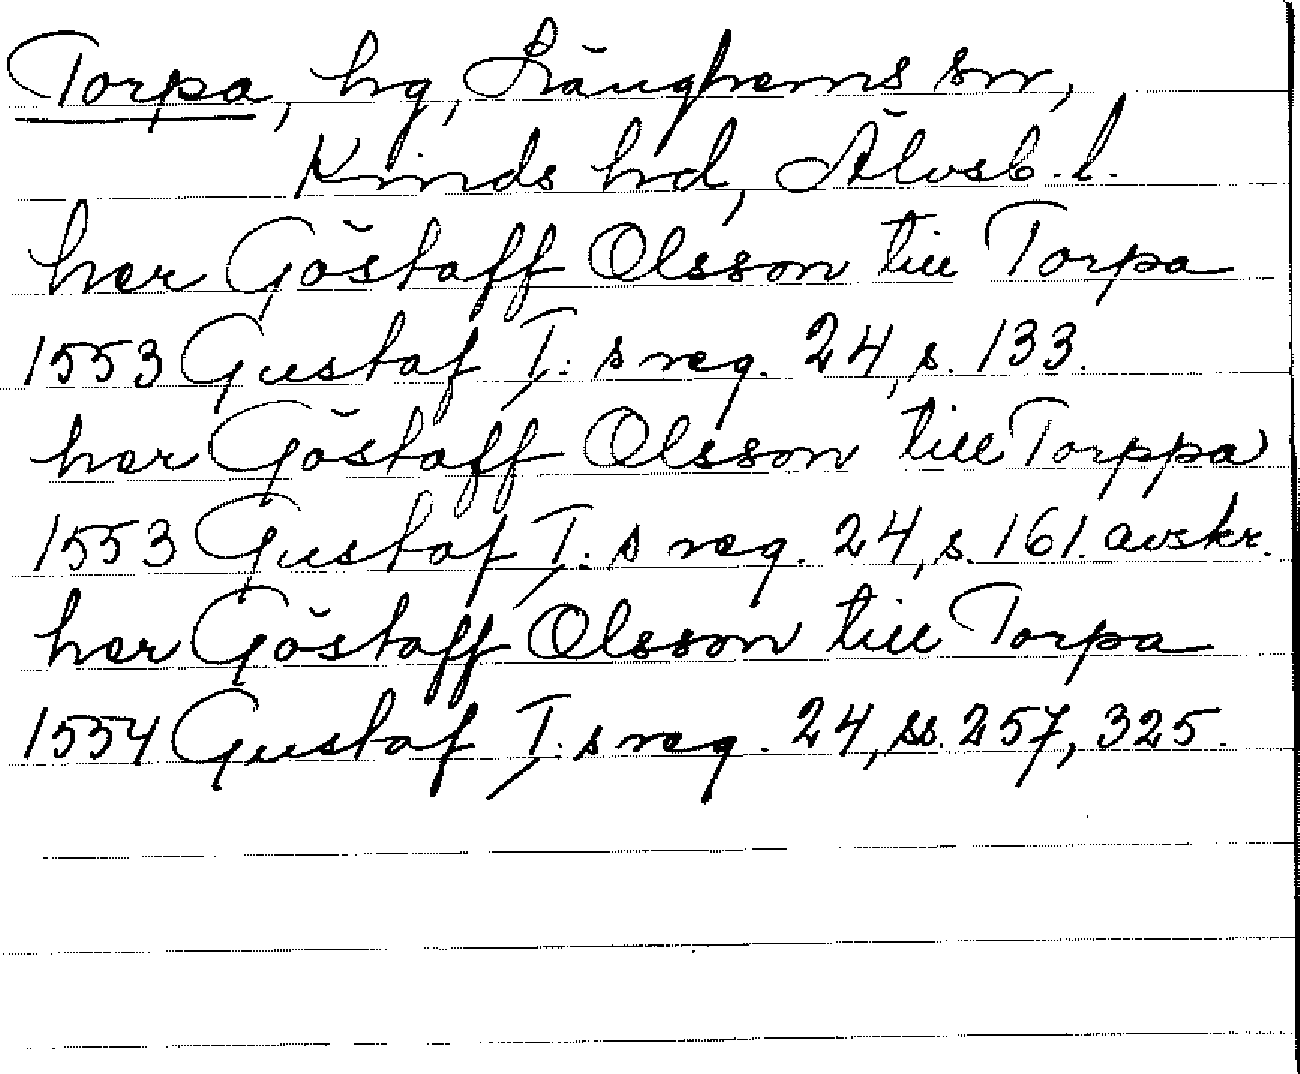 Torpa, hg, Länghems sn,
Kinds hd, Älvsb. l.
her Göstaff Olsson till Torpa
1553 Gustaf I: s reg. 24, s. 133.
her Göstaff Olsson till Torppa
1553 Gustaf I: s reg. 24, s. 161. avskr.
her Göstaff Olsson till Torpa
1554 Gustaf I: s reg. 24, ss. 257, 325.